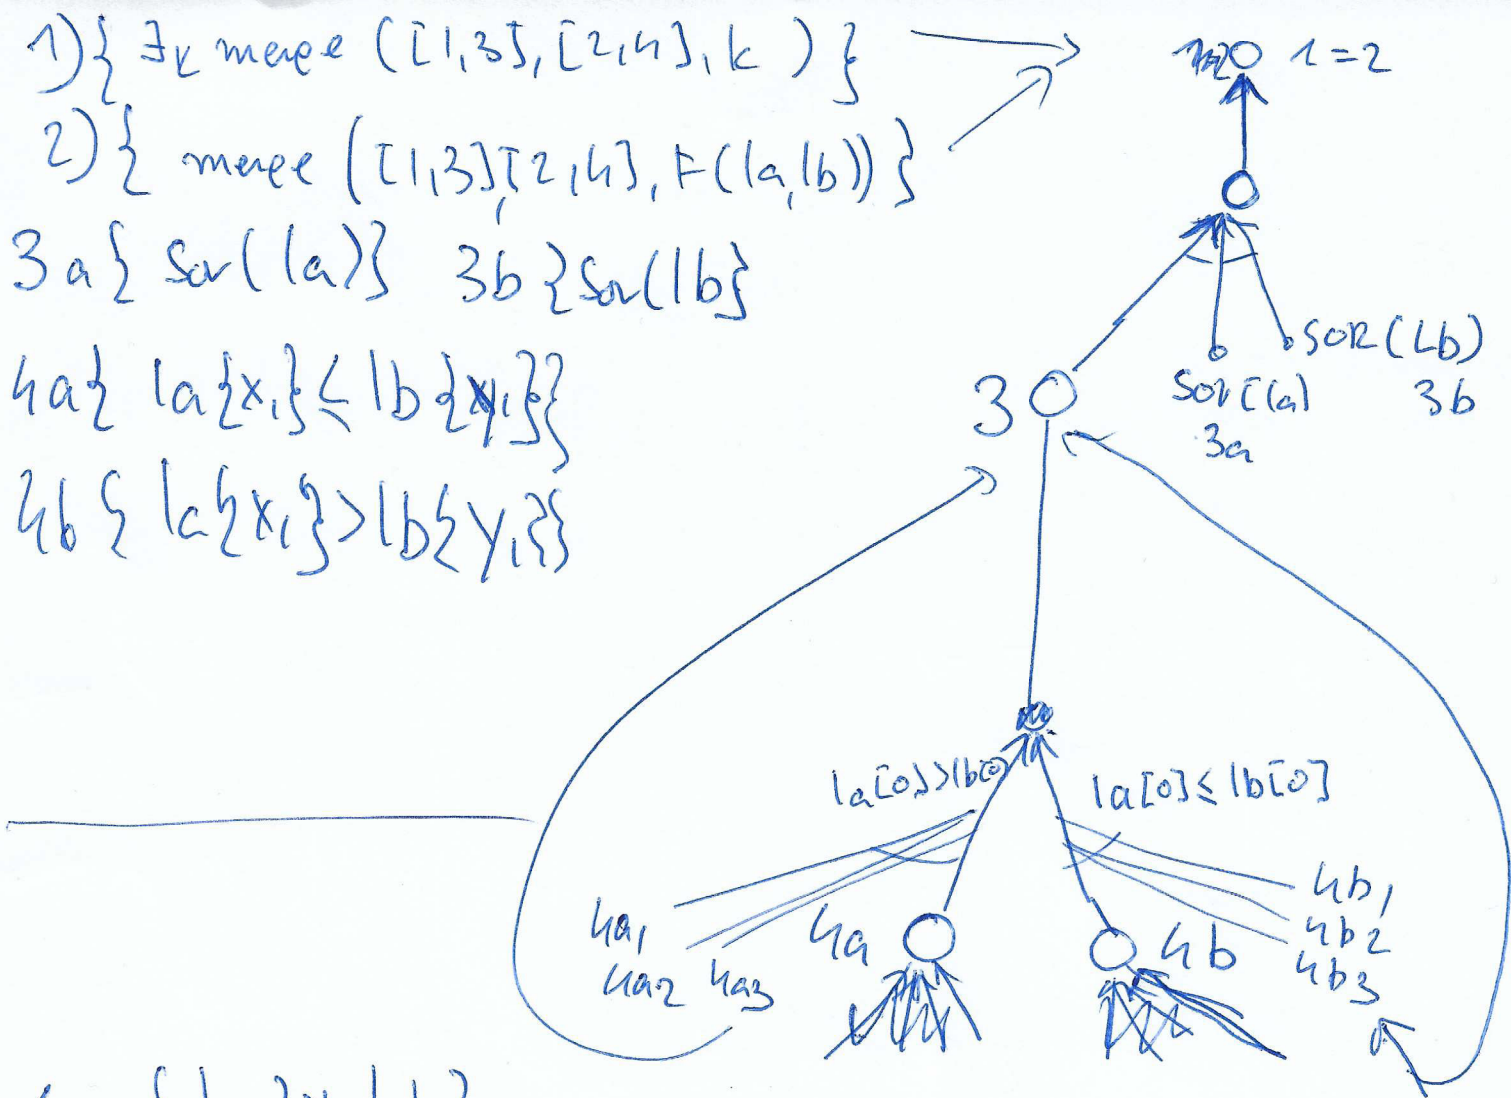 1){ ∃k merge ([1,3],[2,4],k ) }
2){ merge ([1,3],[2,4], F(la,lb)) }
3a{ Sor(la)} 3b }Sor(lb}
4a{ la{x,}≤ lb{y,}}
4b { la{x,}>lb{y,}}
1=2
3
SOR(Lb)
3b
Sor(la)
3a
la[0]>lb[0]
la[0]≤ lb[0]
4a1
4a2 4a3
4a
4b
4b1
4b2
4b3